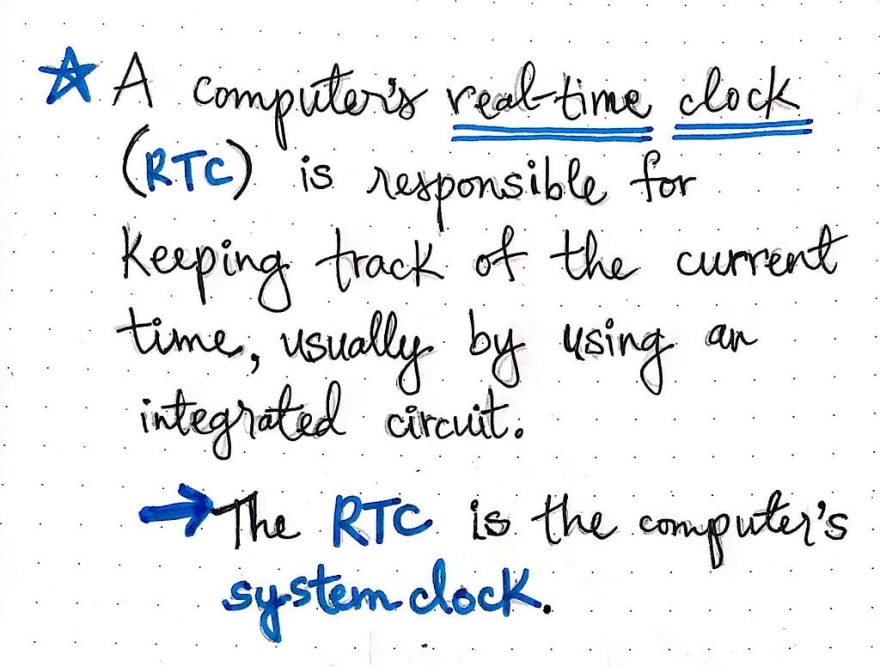 A computer's real-time clock
(RTC) is responsible for
keeping track of the current
time, usually by using an
integrated circuit.
The RTC is the computer's
system clock.